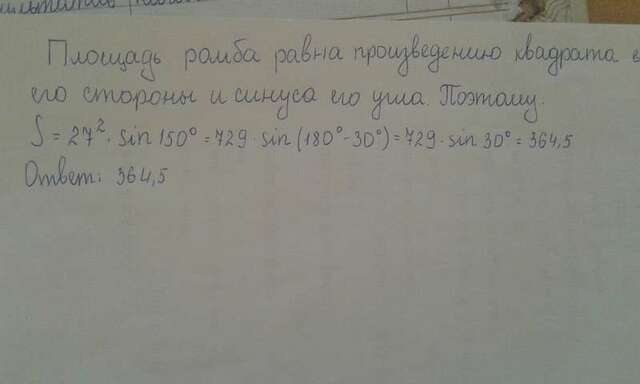 Площадь ромба равна произведению квадрата е
его стороны и синуса его угла. Поэтому.
S = 27². sin 150° = 729 · sin (180° - 30°) = 729 · sin 30° = 364,5
Ответ: 364,5